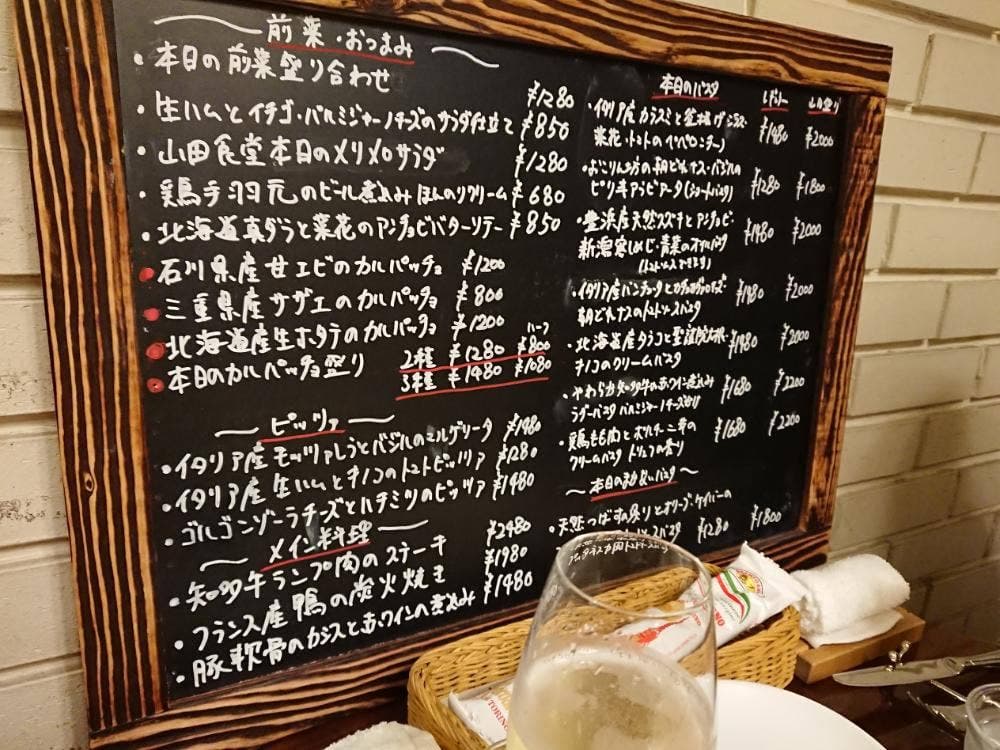 前菜・おつまみ
・本日の前菜盛り合わせ ¥1280
・生ハムとイチゴ・パルミジャーノチーズのサラダ仕立て ¥850
・山田食堂本日のメリメロサラダ ¥1280
・鶏手羽元のビール煮込み ほんのりクリーム ¥680
・北海道真ダラと菜花のアンチョビバターソテー ¥850
・石川県産甘エビのカルパッチョ ¥1200
・三重県産サザエのカルパッチョ ¥800
・北海道産生ホタテのカルパッチョ ¥1200
・本日のカルパッチョ盛り 2種 ¥1280 ハーフ ¥800
3種 ¥1480 ¥1080
ピッツァ
・イタリア産モッツァレラとバジルのマルゲリータ ¥1480
・イタリア産生ハムとキノコのトマトピッツァ ¥1280
・ゴルゴンゾーラチーズとハチミツのピッツァ ¥1480
メイン料理
・知多牛ランプ肉のステーキ ¥2480
・フランス産鴨の炭火焼き ¥1980
・豚軟骨のカシスと赤ワインの煮込み ¥1480
本日のパスタ
レギュラー 山盛り
・イタリア産カラスミと釜揚げシラス・
菜花・トマトのペペロンチーノ ¥1480 ¥2000
ピリ辛アラビアータ(ショートパスタ) ¥1280 ¥1800
・豊浜産天然スズキとアンチョビ・
新潟寒しめじ・青菜のオイルパスタ ¥1480 ¥2000
・イタリア産パンチェッタと
朝どれナスのトマトソースパスタ ¥1480 ¥2000
・北海道産タラコと聖護院大根・
キノコのクリームパスタ ¥1480 ¥2000
・やわらか知多牛の赤ワイン煮込み
ラグーパスタ パルミジャーノチーズがけ ¥1680 ¥2200
・鶏もも肉とポルチーニ茸の
クリームパスタ トリュフの香り ¥1680 ¥2200
本日のまかないパスタ
・天然つばすの炙りとオリーブ・ケイパーの
¥1280 ¥1800